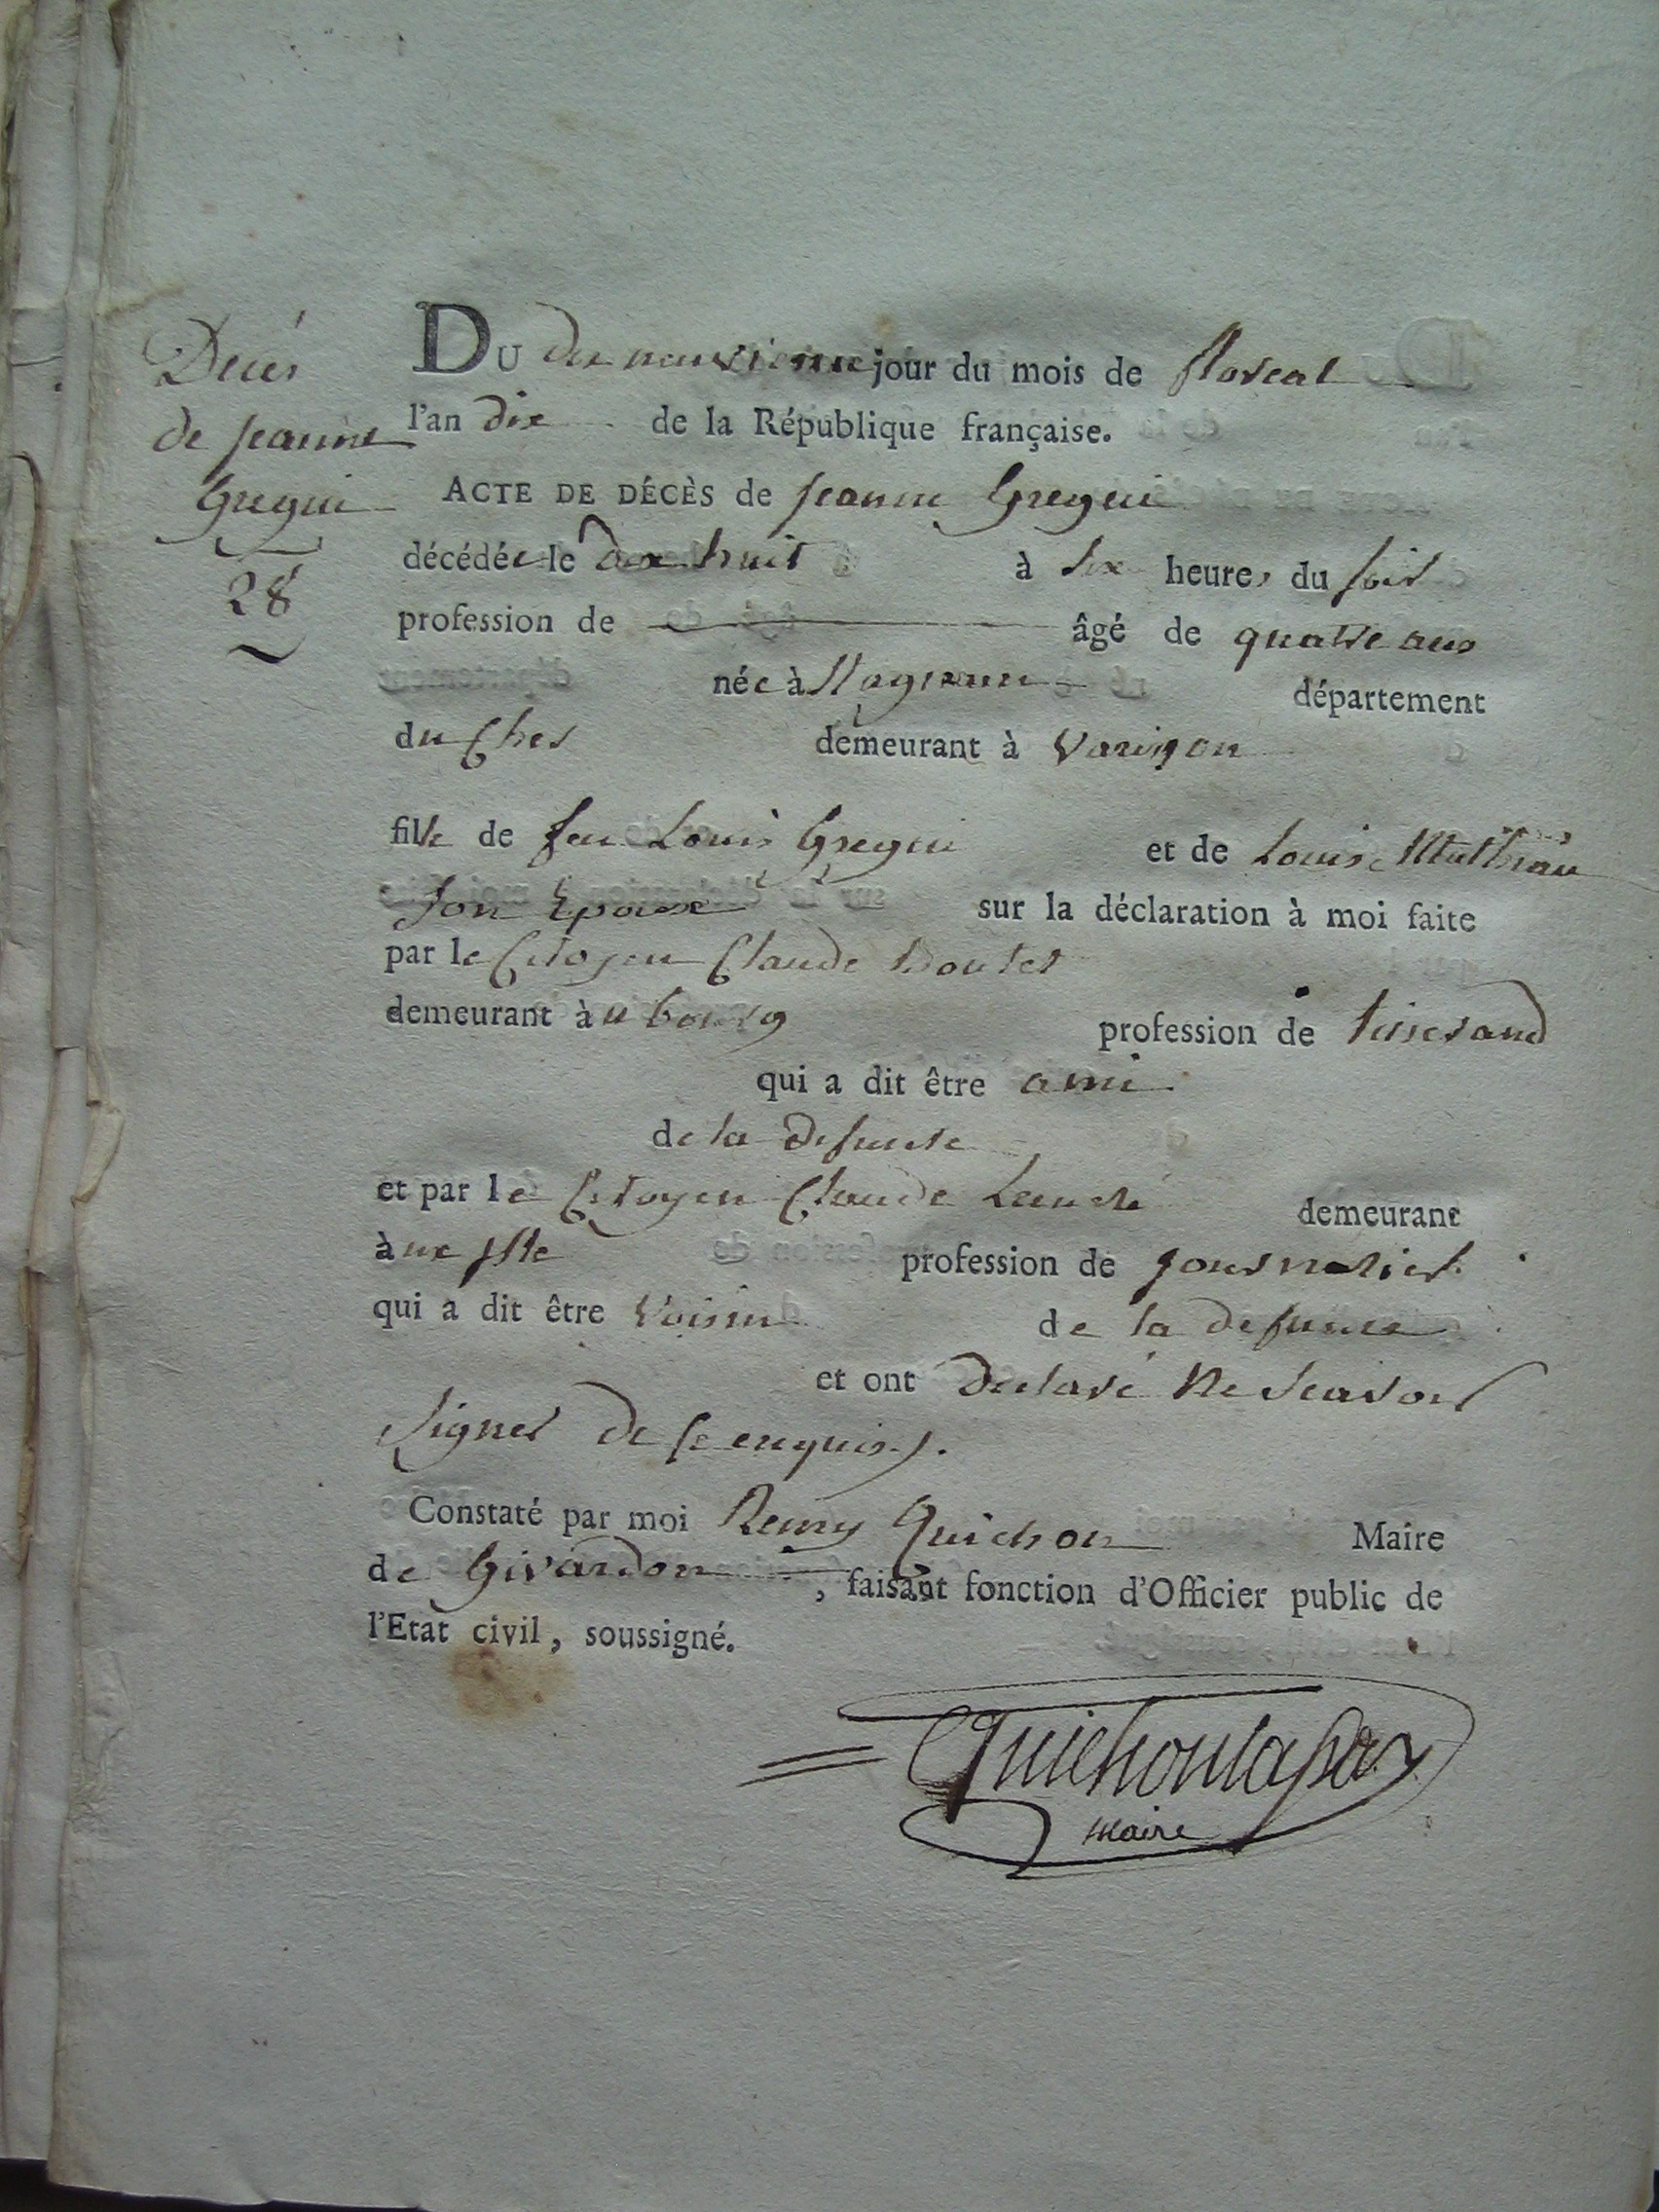 Décés
de jeanne
Greguin
28
DU dix neuvieme jour du mois de floreal
l'an dix de la République française.
ACTE DE DÉCÈS de jeanne Greguin
décédée le dix huit à six heures du soir
profession de âgé de quatre ans
née à département
du Cher demeurant à
fille de feu Louis Greguin et de Louise
son Epouse sur la déclaration à moi faite
par le Citoyen Claude Boutet
demeurant àu bourg profession de tisserand
qui a dit être ami
de la defunte
et par le Citoyen Claude demeurant
à profession de journalier
qui a dit être Voisin de la defunte
et ont declaré ne scavoir
signer de ce enquis).
Constaté par moi Remy Quichon Maire
de Givardon, faisant fonction d'Officier public de
l'Etat civil, soussigné.
maire